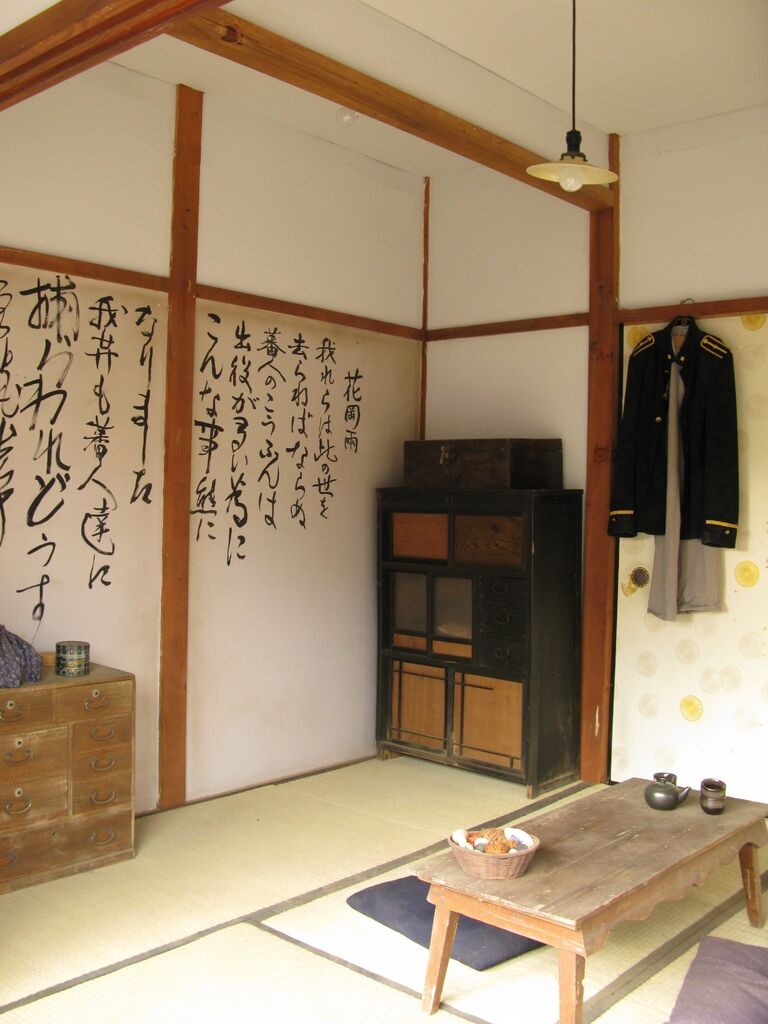 花岡両
我れらは此の世を
去らねばならぬ
蕃人のこうふんは
出役が多い為に
こんな事態に
なりました
我等も蕃人達に
捕らわれどうす